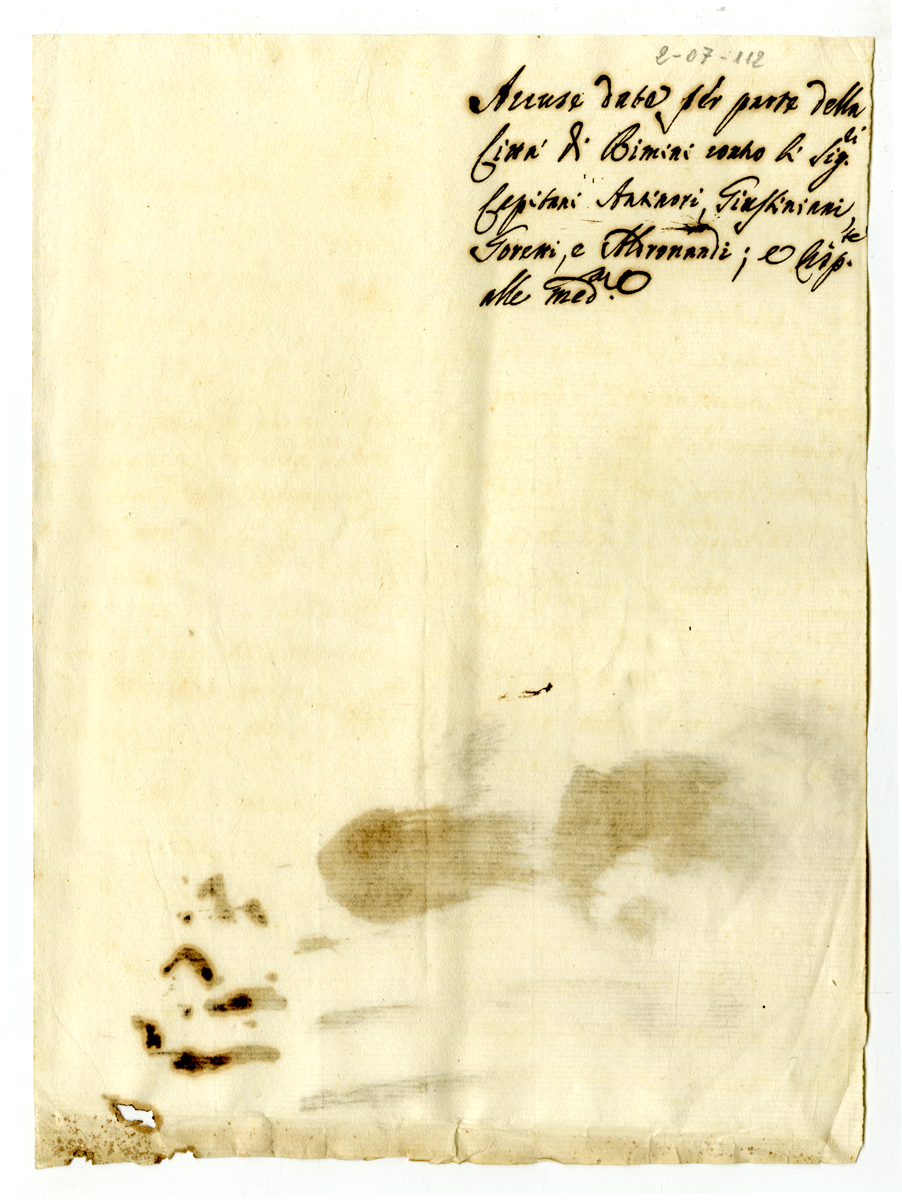 2-07-112
Accuse date per parte della
Città di Rimini contro li Sig.ri
Capitani Antinori, Giustiniani,
Toretti, e ; e Risp.te
alle med.me